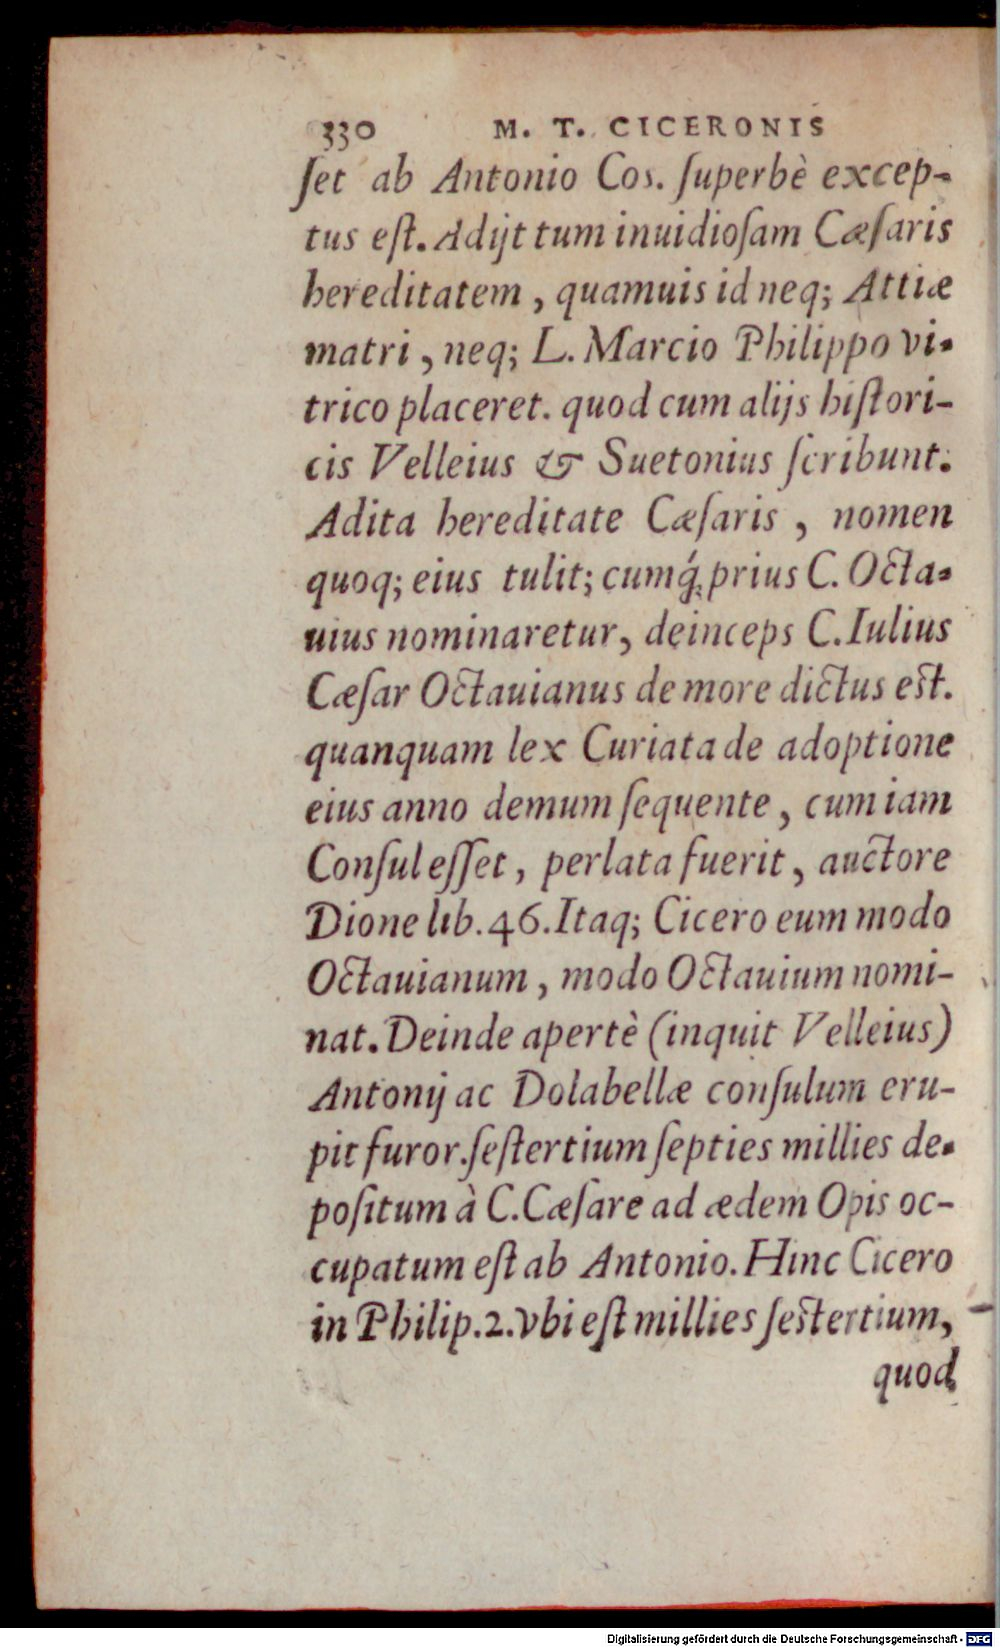 330 M. T. CICERONIS
ſet ab Antonio Cos. ſuperbè excep-
tus eſt. Adijt tum inuidioſam Cæſaris
hereditatem, quamuis id neq; Attiæ
matri, neq; L. Marcio Philippo vi-
trico placeret. quod cum alijs hiſtori-
cis Velleius & Suetonius ſcribunt.
Adita hereditate Cæſaris, nomen
quoq; eius tulit; cumq́; prius C. Octa-
uius nominaretur, deinceps C. Iulius
Cæſar Octauianus de more dictus est.
quanquam lex Curiata de adoptione
eius anno demum ſequente, cum iam
Conſul eſſet, perlata fuerit, auctore
Dione lib. 46. Itaq; Cicero eum modo
Octauianum, modo Octauium nomi-
nat. Deinde apertè (inquit Velleius)
Antonij ac Dolabellæ conſulum eru-
pit furor. ſeſtertium ſepties millies de-
poſitum à C. Cæſare ad ædem Opis oc-
cupatum eſt ab Antonio. Hinc Cicero
in Philip. 2. Vbi eſt millies ſestertium,
quod
Digitalisierung gefördert durch die Deutsche Forschungsgemeinschaft - DFG